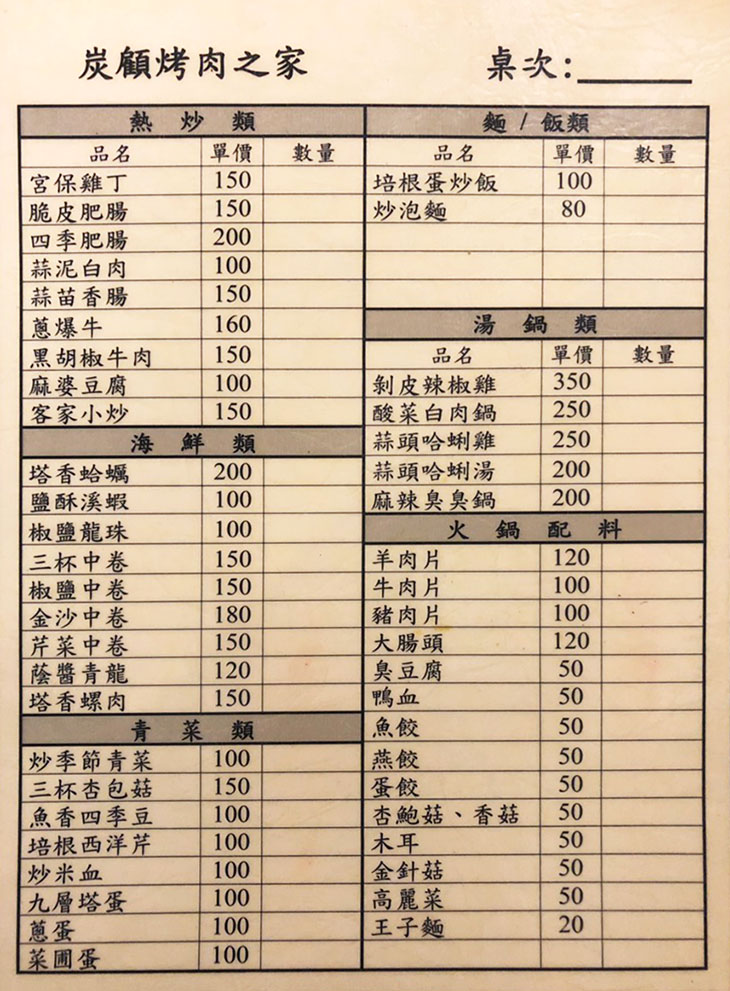 炭顧烤肉之家
桌次:
熱炒類
品名 單價 數量
宮保雞丁 150
脆皮肥腸 150
四季肥腸 200
蒜泥白肉 100
蒜苗香腸 150
蔥爆牛 160
黑胡椒牛肉 150
麻婆豆腐 100
客家小炒 150
海鮮類
塔香蛤蠣 200
鹽酥溪蝦 100
椒鹽龍珠 100
三杯中卷 150
椒鹽中卷 150
金沙中卷 180
芹菜中卷 150
蔭醬青龍 120
塔香螺肉 150
青菜類
炒季節青菜 100
三杯杏包菇 150
魚香四季豆 100
培根西洋芹 100
炒米血 100
九層塔蛋 100
蔥蛋 100
菜圃蛋 100
麵/飯類
品名 單價 數量
培根蛋炒飯 100
炒泡麵 80
湯鍋類
品名 單價 數量
剝皮辣椒雞 350
酸菜白肉鍋 250
蒜頭哈蜊雞 250
蒜頭哈蜊湯 200
麻辣臭臭鍋 200
火鍋配料
羊肉片 120
牛肉片 100
豬肉片 100
大腸頭 120
臭豆腐 50
鴨血 50
魚餃 50
燕餃 50
蛋餃 50
杏鮑菇、香菇 50
木耳 50
金針菇 50
高麗菜 50
王子麵 20